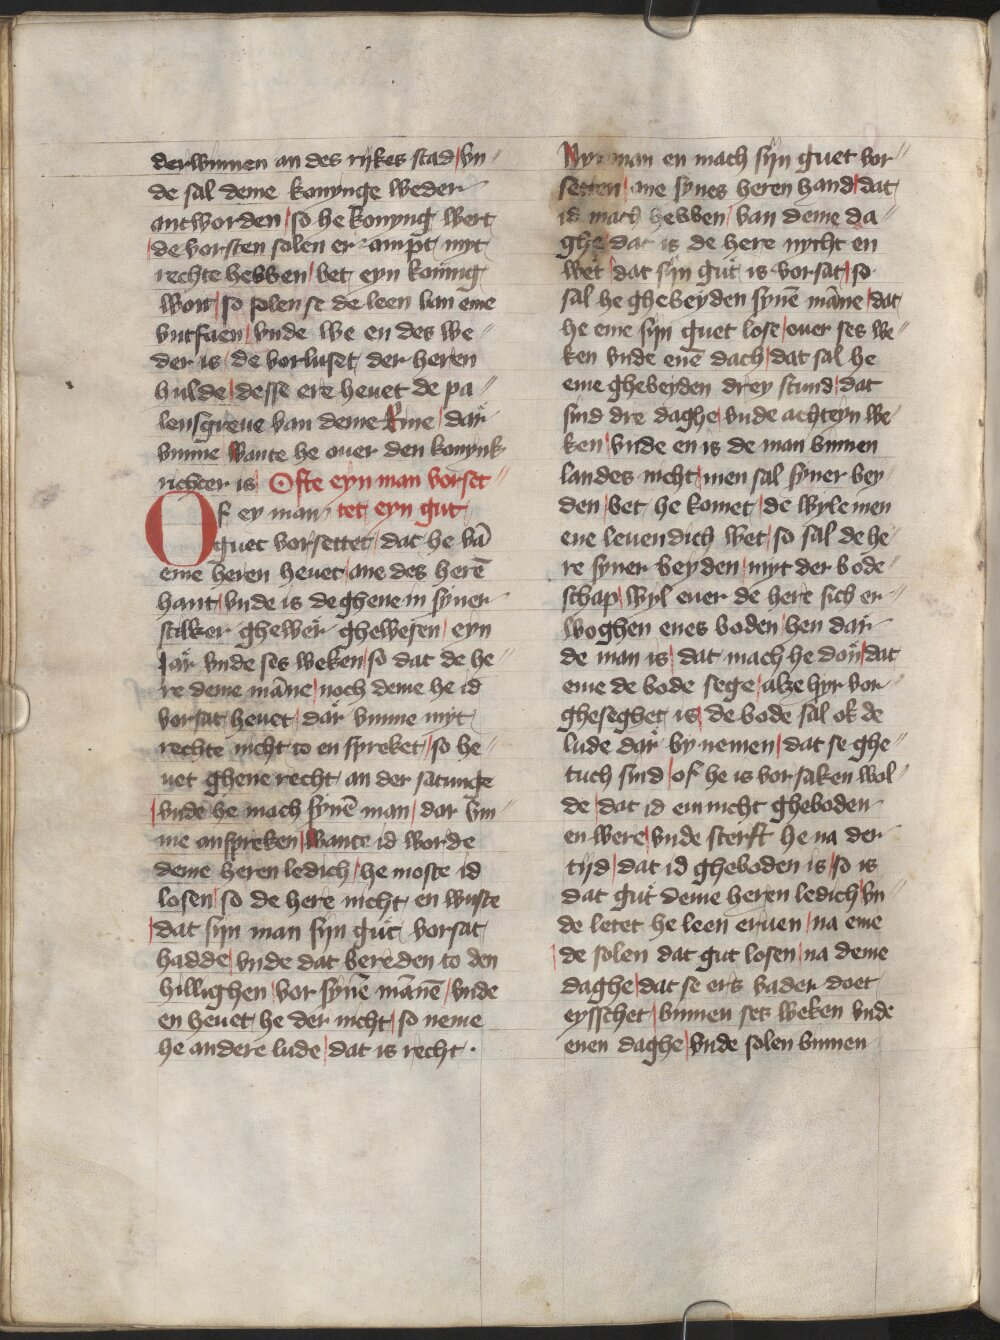 derwinnen an des rijkes stad / vn //
de sal deme konynge weder
antworden / so he konyng wert
/ de vorsten solen er ampt myt
rechte hebben / bet eyn koning
wort / so solen se de leen van eme
vntfaen / vnde we en des we //
der is / de vorluset der heren
hulde / desse ere heuet de pa //
lensgreue van deme Rine / dar
vmme wante he ouer den konynk
richter is Ofte eyn man vorset //
Of ey man / tet eyn gut
guet vorsettet / dat he vā
eme heren heuet / ane des herē
hant / vnde is deghene in syner
stilker ghewer ghewesen / eyn
jar vnde ses weken / so dat de he //
re deme māne / noch deme he id
vorsat heuet / dar vmme myt
rechte nicht to en spreket / so he //
uet ghene recht / an der satunge
/ vnde he mach synē man / dar vm //
me anspreken / wante id worde
deme heren ledich / he moste id
losen / so de here nicht en wuste
/ dat syn man syn gut vorsat
hadde / vnde dat bereden to den
hillighen / vor synē mānē / vnde
en heuet he der nicht / so neme
he andere lude / dat is recht .
Nyn man en mach syn guet vor //
setten / ane synes heren hand / dat
id mach hebben / van deme da //
ghe / dat is de here nycht en
wet / dat syn gut is vorsat / so
sal he ghebeyden synē māne / dat
he eme syn guet lose / ouer ses we //
ken vnde enē dach / dat sal he
eme ghebeyden drey stund / dat
sind dre daghe / vnde achteyn we /
ken / vnde en is de man binnen
landes nicht / men sal syner bey //
den / bet he komet / de wyle men
ene leuendich wet / so sal de he //
re syner beyden / myt der bode //
schap / wyl euer de here sich er //
woghen enes boden / hen dar
de man is / dat mach he don / dat
eme de bode sege / alze hyr vor
gheseghet is / de bode sal ok de
lude dar by nemen / dat se ghe //
tuch sind / of he is vorsaken wol //
de / dat id em nicht gheboden
en were / vnde sterft he na der
tijd / dat id gheboden is / so is
dat gut deme heren ledich / vn //
de letet he leen eruen / na eme
/ de solen dat gut losen / na deme
daghe / dat se ers vader doet
eysschet / binnen ses weken vnde
enen daghe / vnde solen binnen